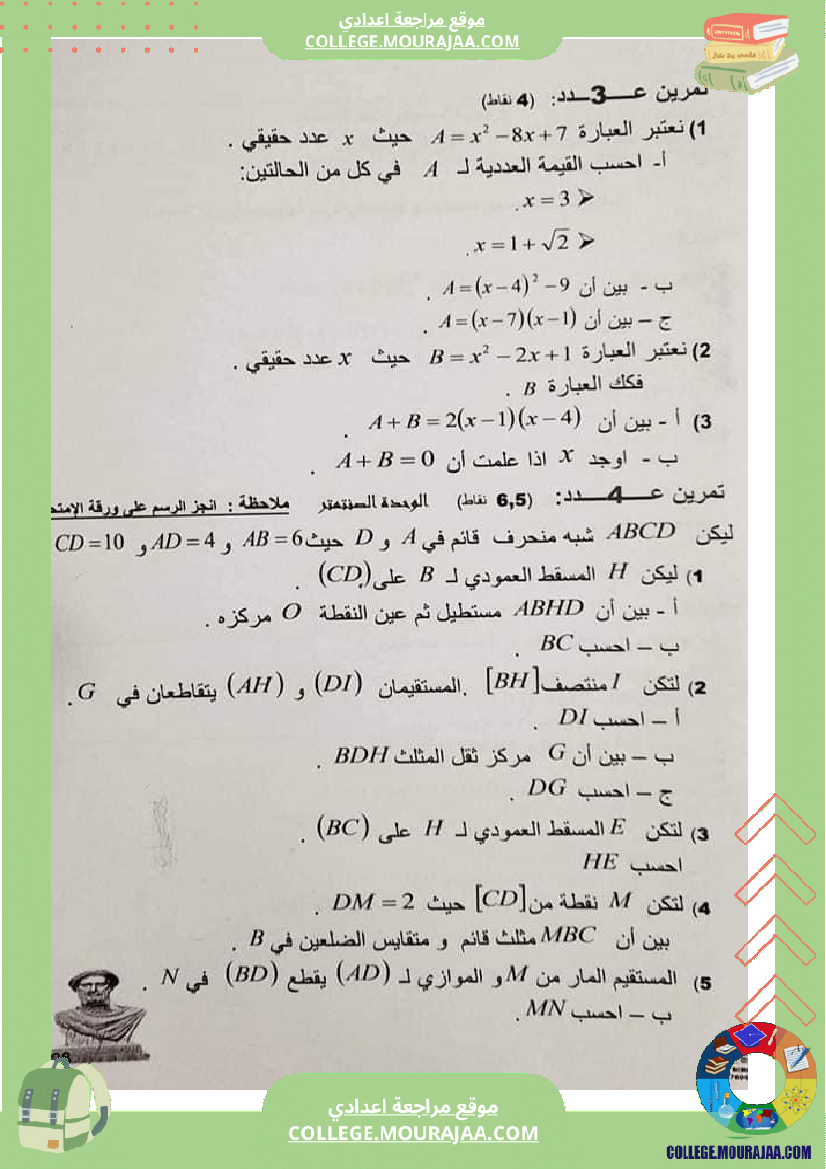 موقع مراجعة اعدادي
COLLEGE.MOURAJAA.COM
تمرين عـــ3ــدد: (4 نقاط)
1) نعتبر العبارة A = x² − 8x + 7 حيث x عدد حقيقي .
أ- احسب القيمة العددية لـ A في كل من الحالتين:
➢ x = 3 .
➢ x = 1 + √2 .
ب - بين أن A = (x − 4)² − 9 .
ج – بين أن A = (x − 7)(x − 1) .
2) نعتبر العبارة B = x² − 2x + 1 حيث x عدد حقيقي .
فكك العبارة B .
3) أ - بين أن A + B = 2(x − 1)(x − 4) .
ب - اوجد x اذا علمت أن A + B = 0 .
تمرين عـــ4ــدد: (6,5 نقاط) الوحدة الصنتمتر ملاحظة : انجز الرسم على ورقة
ليكن ABCD شبه منحرف قائم في A و D حيث AB = 6 و AD = 4 و CD = 10
1) ليكن H المسقط العمودي لـ B على (CD) .
أ - بين أن ABHD مستطيل ثم عين النقطة O مركزه .
ب – احسب BC .
2) لتكن I منتصف [BH] . المستقيمان (DI) و (AH) يتقاطعان في G .
أ – احسب DI .
ب – بين أن G مركز ثقل المثلث BDH .
ج – احسب DG .
3) لتكن E المسقط العمودي لـ H على (BC) .
احسب HE
4) لتكن M نقطة من [CD] حيث DM = 2 .
بين أن MBC مثلث قائم و متقايس الضلعين في B .
5) المستقيم المار من M و الموازي لـ (AD) يقطع (BD) في N .
ب – احسب MN .
موقع مراجعة اعدادي
COLLEGE.MOURAJAA.COM
COLLEGE.MOURAJAA.COM